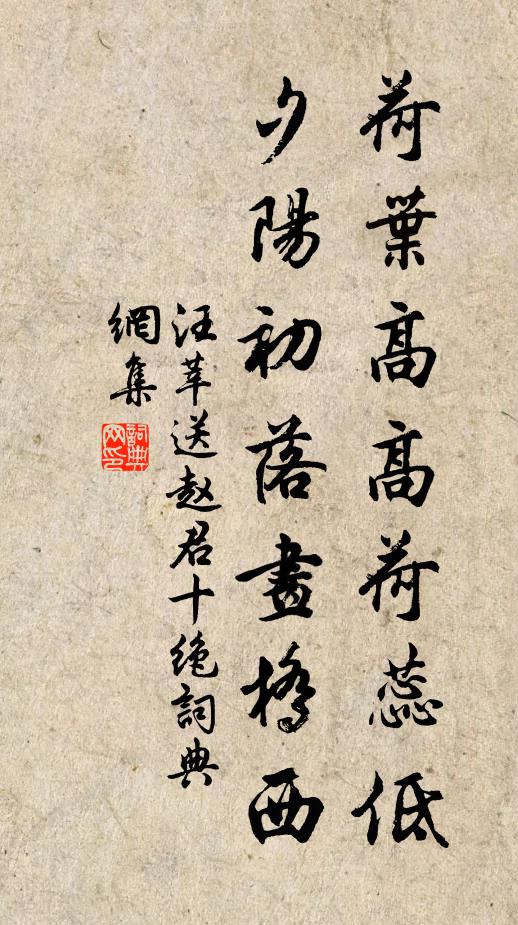 荷葉高高荷蕊低
夕陽初落畫橋西
汪莘送赵君十绝詞典
網集
詞典
网印